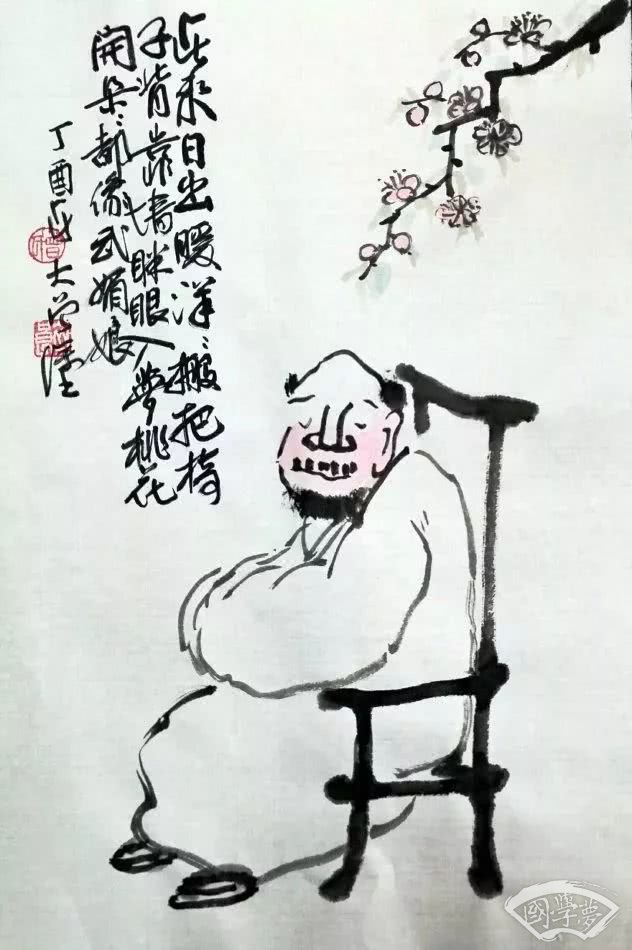 来日出暖洋〻搬把椅
子背靠墙眯眼入梦桃花
開朵〻都像武媚娘
丁酉 大
國學夢